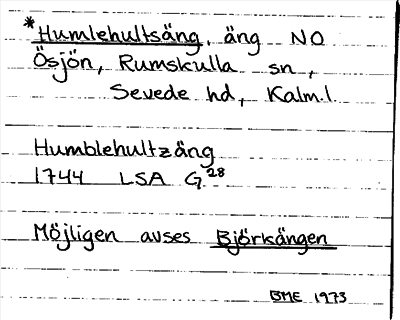 *Humlehultsäng, äng NO
Ösjön, Rumskulla sn,
Sevede hd, Kalm.l.
Humblehultzäng
1744 LSA G 28
Möjligen avses Björksängen
BME 1973